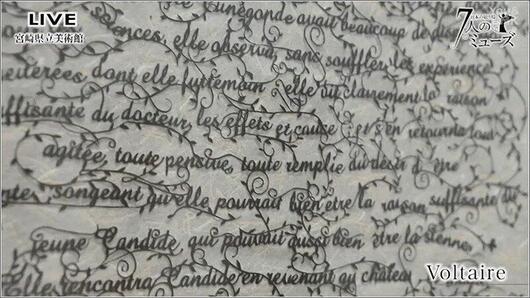 LIVE
宮崎県立美術館
7人の
ミューズ
avait beaucoup de dis
sciences, elle observa, sans souffler, les expériences
dont elle fut témoin elle vit clairement la raison
suffisante du docteur, les effets et cause et s'en retourna tout
agitée, toute pensive, toute remplie du désir d' être
songeant qu'elle pourrait bien être la raison suffisante du
jeune Candide, qui pourrait aussi bien être la sienne.
Elle rencontra Candide en revenant au château
Voltaire